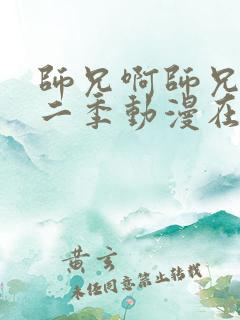 師兄啊師兄
二季動漫在
黄玄
未经同意禁止转载